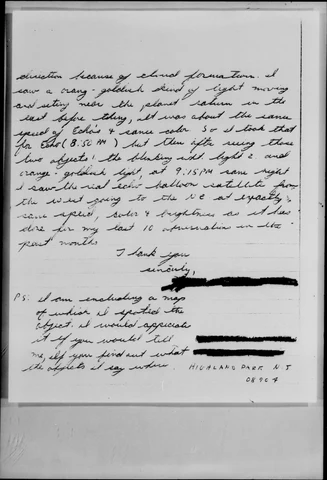 direction because of cloud formation. I
saw a orang-goldish kind of light moving
and sitting near the planet saturn in the
east before taking, it was about the same
speed of Echo's & same color so I took that
for Echo (8:50 PM) but then after seeing those
two objects: the blinking light & and
orange-goldish light, at 9:15 PM same night
I saw the real echo balloon satellite from
the west going to the NE at exactly
same speed, color & brightness as it has
done for my last 10 observation in the
past months
Thank you
sincerly,
P.S. I am including a map
of where I spoted the
object. I would appreciate
it if you would tell
me, if you find out what
the objects it say where.
HIGHLAND PARK N.J
08904